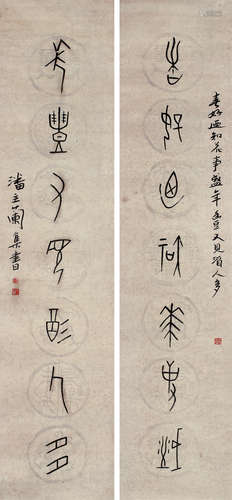 春好迺知花事盛
春好迺知花事盛年豐又見酒人多
年豐又見酒人多
潘主蘭集書